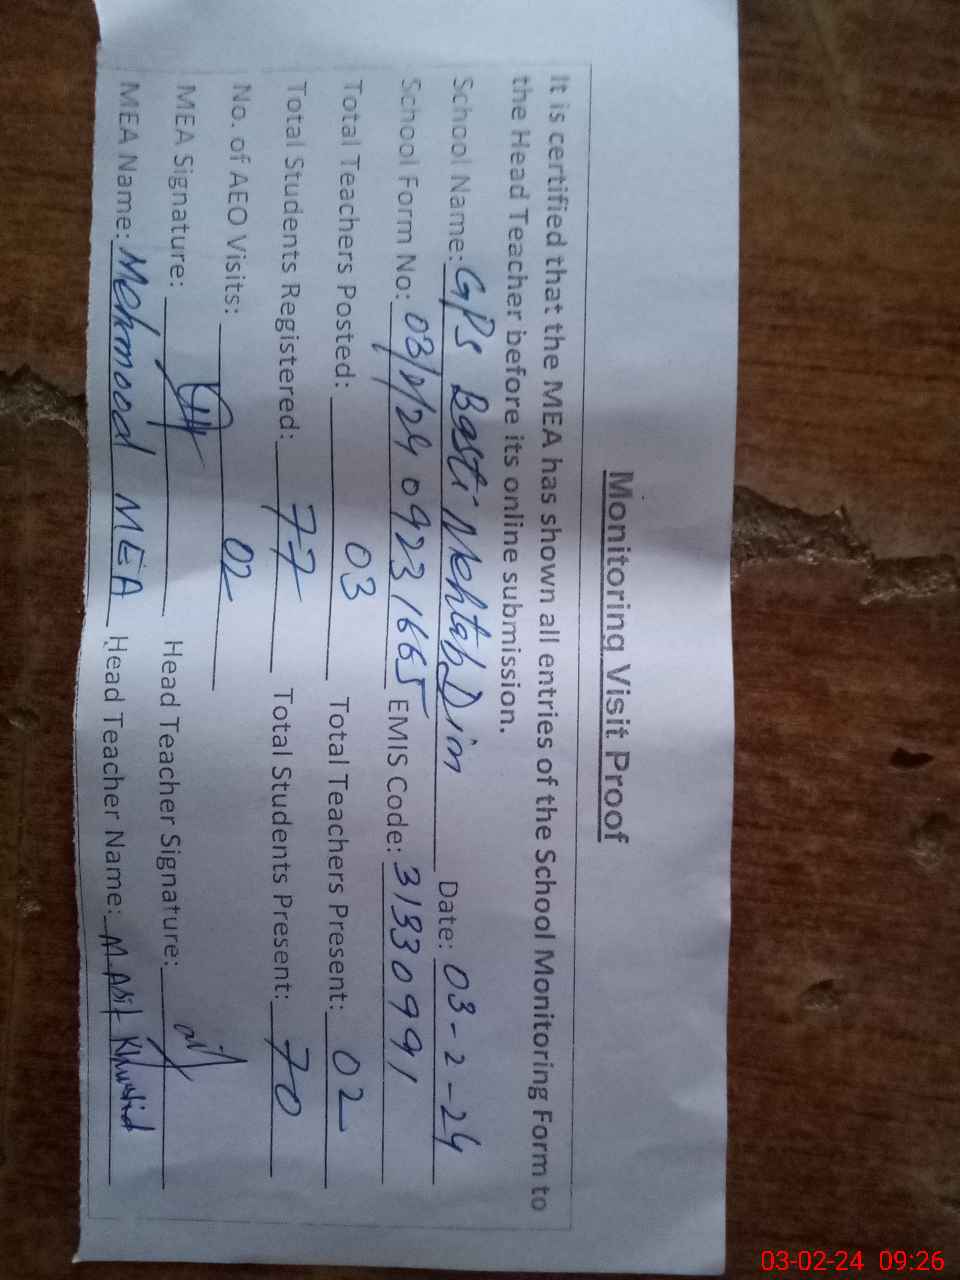 Monitoring Visit Proof
It is certified that the MEA has shown all entries of the School Monitoring Form to
the Head Teacher before its online submission.
School Name: GPS Basti Mehtab Din Date: 03-2-24
School Form No: 03/2/24 0923 1665 EMIS Code: 31330991
Total Teachers Posted: 03 Total Teachers Present: 02
Total Students Registered: 77 Total Students Present: 70
No. of AEO Visits: 02
MEA Signature: Head Teacher Signature:
MEA Name: Mehmood MEA Head Teacher Name: M. Asif Khurshid
03-02-24 09:26